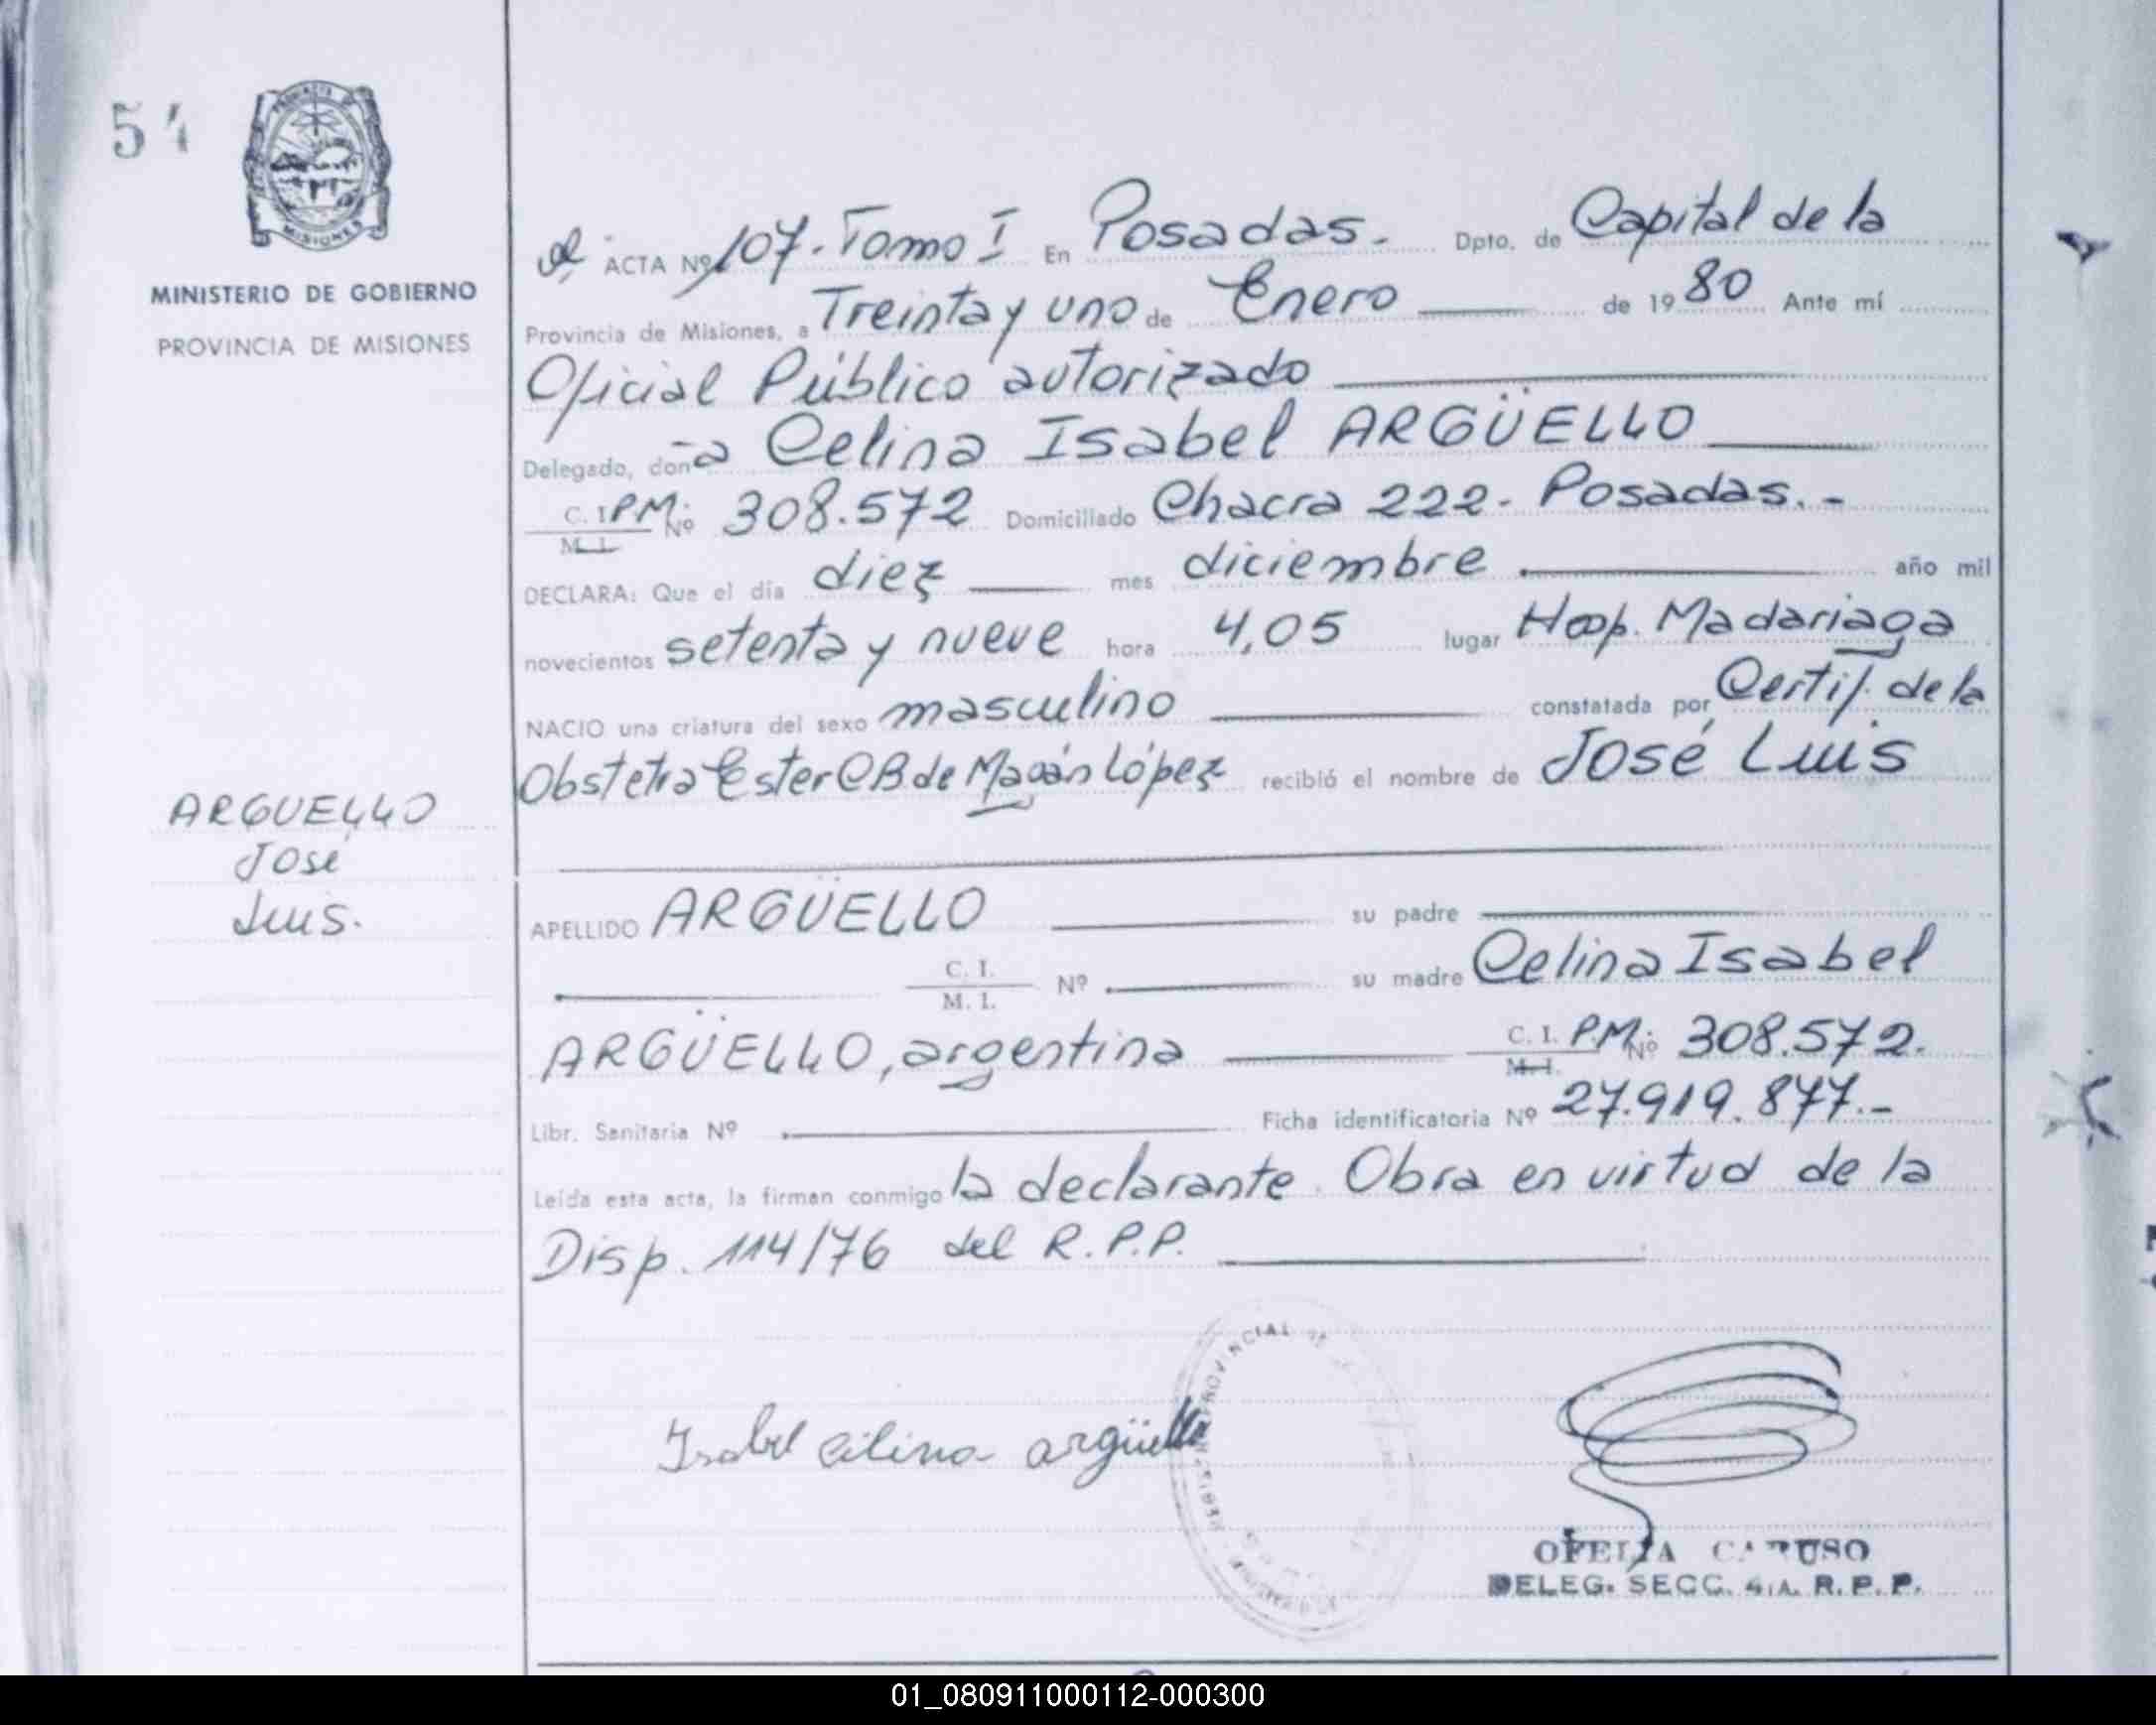 54
PROVINCIA DE
MISIONES
MINISTERIO DE GOBIERNO
PROVINCIA DE MISIONES
ARGUELLO
José
Luis.
ACTA Nº 107. Tomo I En Posadas. Dpto. de Capital de la
Provincia de Misiones, a Treinta y uno de Enero de 1980 Ante mí
Oficial Público autorizado
Delegado, doña Celina Isabel ARGÜELLO
C. I. P.M. Nº 308.572 Domiciliado Chacra 222. Posadas. -
M. I.
DECLARA: Que el día diez mes diciembre año mil
novecientos setenta y nueve hora 4,05 lugar Hosp. Madariaga
NACIO una criatura del sexo masculino constatada por Certif. de la
Obstetra Ester C B de Magán López recibió el nombre de José Luis
APELLIDO ARGÜELLO su padre
C. I.
M. I. Nº su madre Celina Isabel
ARGÜELLO, argentina C. I. P.M. Nº 308.572.
M. I.
Libr. Sanitaria Nº Ficha identificatoria Nº 27.919.877.-
Leída esta acta, la firman conmigo la declarante. Obra en virtud de la
Disp. 114/76 del R.P.P.
PROVINCIAL DE
Isabel Celina argüello
OFELIA CARUSO
DELEG. SECC. 4.A. R. P. P.
01_080911000112-000300